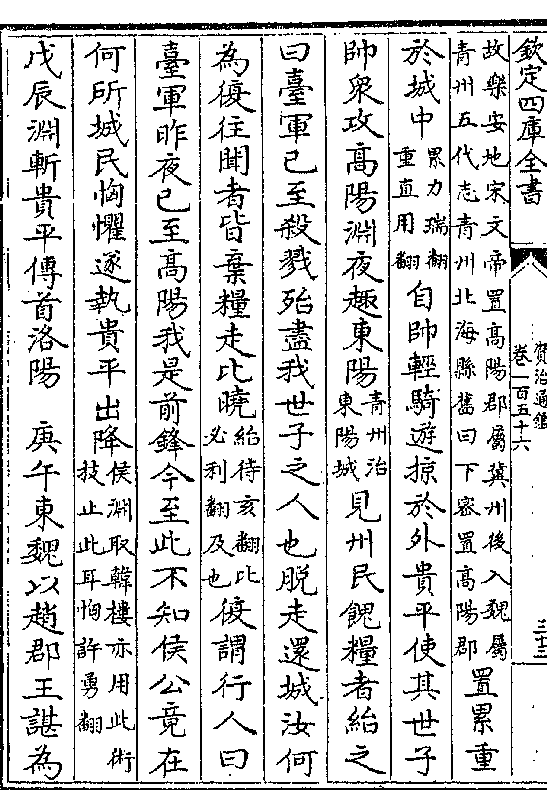 欽定四庫全書
資治通鑑
卷一百五十六
三十三
故樂安地宋文帝置高陽郡屬冀州後入魏屬
青州五代志青州北海縣舊曰下密置高陽郡
置累重
於城中
累力瑞翻
重直用翻
自帥輕騎遊掠於外貴平使其世子
帥衆攻高陽淵夜趣東陽
青州治
東陽城
見州民餽糧者紿之
曰臺軍已至殺戮殆盡我世子之人也脫走還城汝何
為復往聞者皆棄糧走比曉
紿待亥翻比
必利翻及也
復謂行人曰
臺軍昨夜已至高陽我是前鋒今至此不知侯公竟在
何所城民恟懼遂執貴平出降
侯淵取韓樓亦用此術
技止此耳恟許勇翻
戊辰淵斬貴平傳首洛陽　庚午東魏以趙郡王諶為